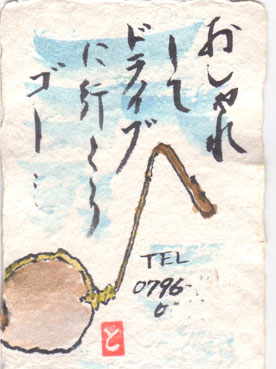 おしゃれ
して
ドライブ
に行こう
ゴー…
TEL
0796-
6
と